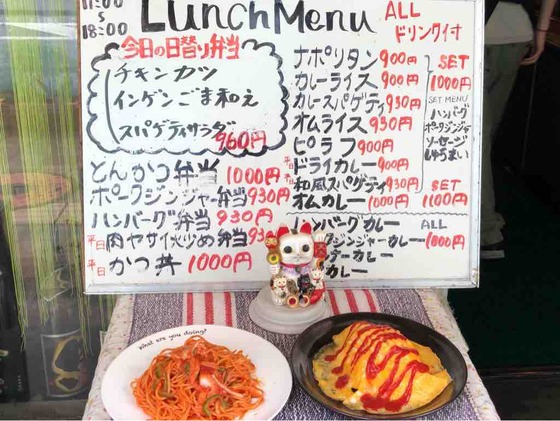 11:00
〜
18:00
LUNCH MENU
ALL
ドリンク付
今日の日替り弁当
チキンカツ
インゲンごま和え
スパゲティサラダ
960円
とんかつ弁当 1000円
ポークジンジャー弁当 930円
ハンバーグ弁当 930円
平日 肉ヤサイ炒め弁当 93
平日 かつ丼 1000円
ナポリタン 900円
カレーライス 900円
カレースパゲティ 930円
オムライス 930円
ピラフ 900円
平日 ドライカレー 900円
和風スパゲティ 930円
オムカレー 1000円
SET
1000円
SET MENU
ハンバーグ
ポークジンジャー
ソーセージ
しゅうまい
SET
1100円
ハンバーグカレー
ジンジャーカレー
カレー
カレー
ALL
1000円
what are you doing?